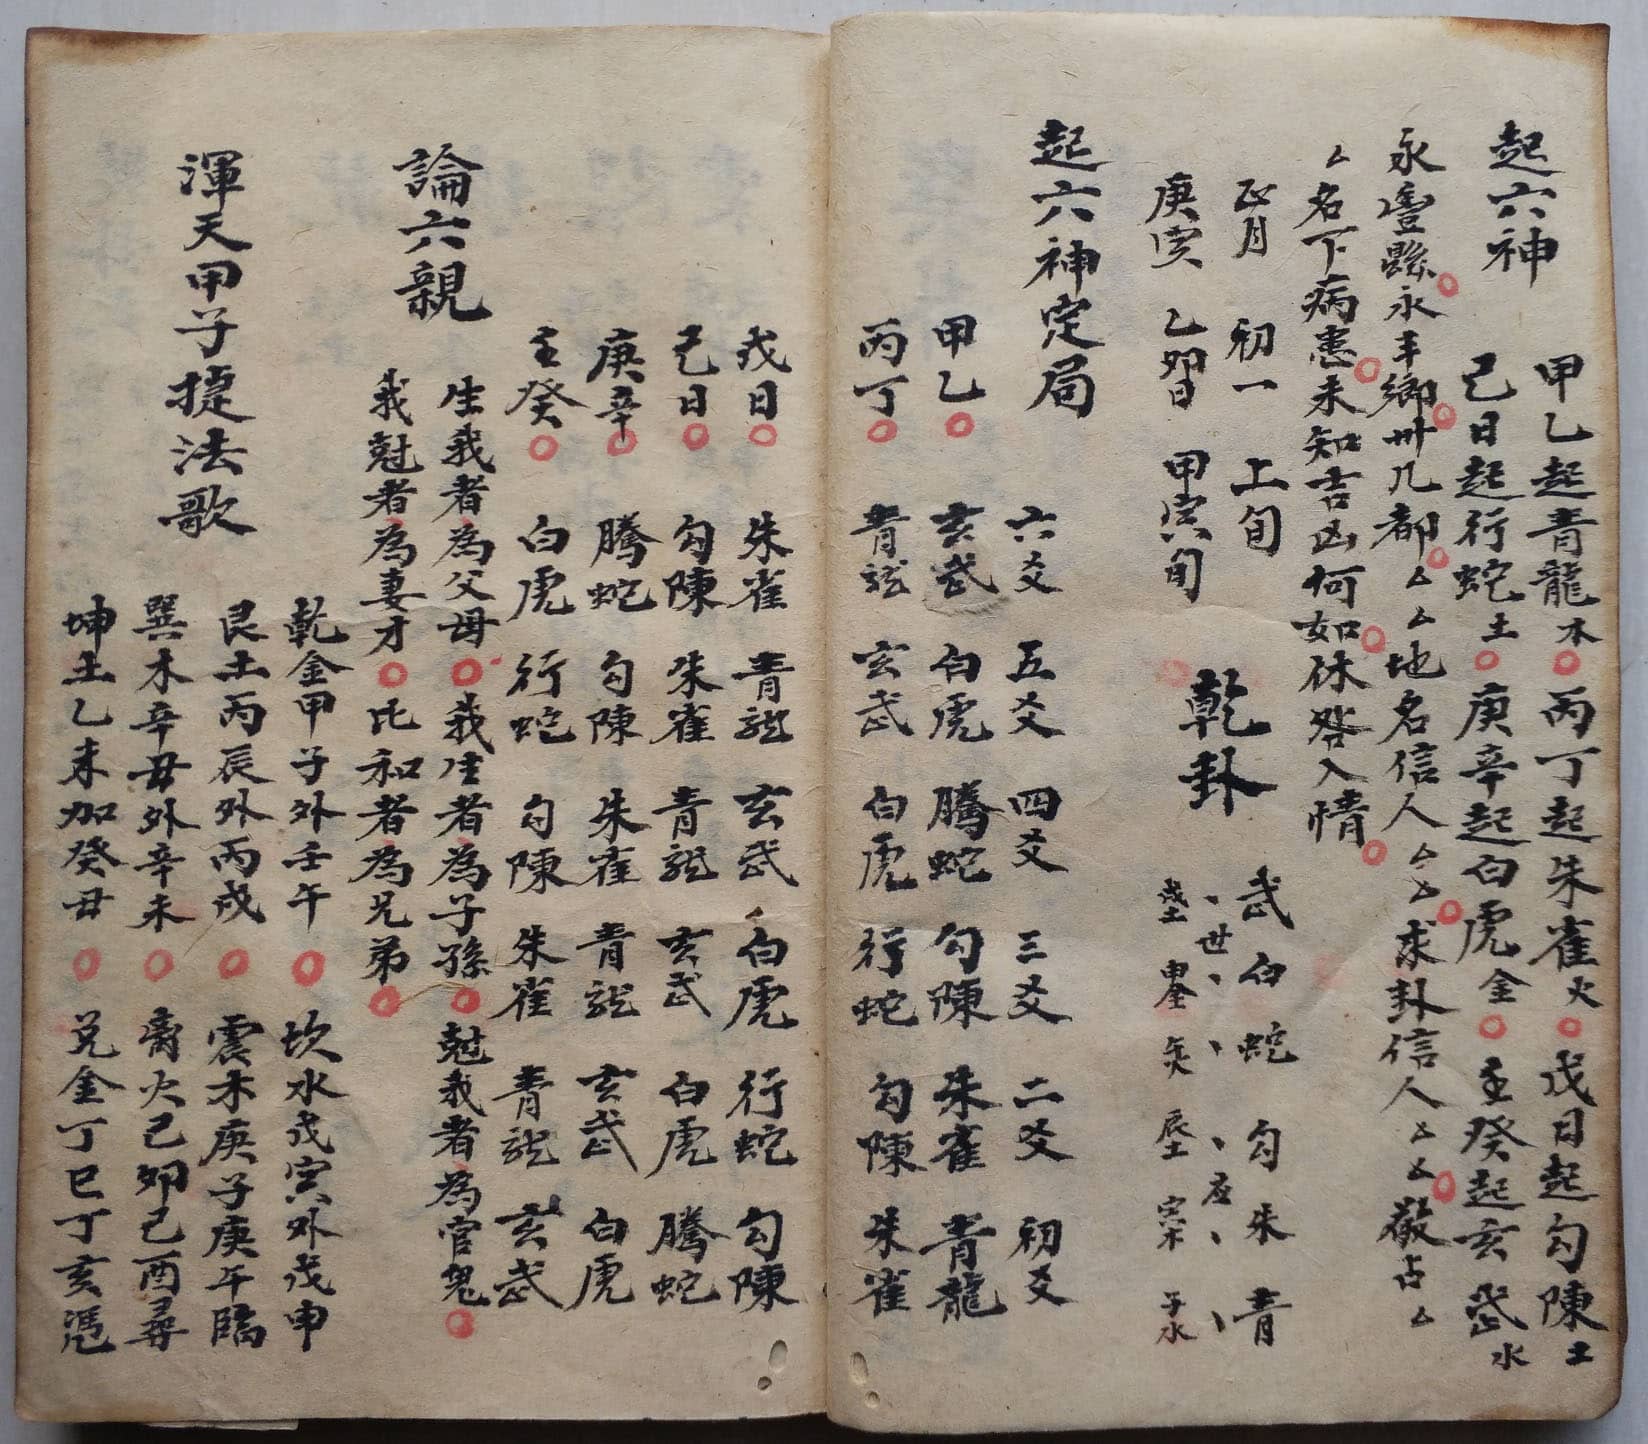 起六神
甲乙起青龍木○丙丁起朱雀火○戊日起勾陳土
己日起行蛇土○庚辛起白虎金○壬癸起玄武水
永豐縣○永丰鄉○卅几都○厶厶地名信人厶厶○求卦信人厶厶○敬占厶
厶名下病患○未知吉凶何如○休咎入情○
正月 初一 上旬
庚寅 乙卯日 甲寅旬
乾卦
武 白 蛇 勾 朱 青
、世、 、 、应、 、
戌土 申金 午火 辰土 寅木 子水
起六神定局
六爻 五爻 四爻 三爻 二爻 初爻
甲乙○ 玄武 白虎 騰蛇 勾陳 朱雀 青龍
丙丁○ 青龙 玄武 白虎 行蛇 勾陳 朱雀
戊日○ 朱雀 青龙 玄武 白虎 行蛇 勾陳
己日○ 勾陳 朱雀 青龙 玄武 白虎 騰蛇
庚辛○ 騰蛇 勾陳 朱雀 青龙 玄武 白虎
壬癸○ 白虎 行蛇 勾陳 朱雀 青龙 玄武
論六親
生我者為父母○我生者為子孫○尅我者為官鬼○
我尅者為妻才○比和者為兄弟○
渾天甲子捷法歌
乾金甲子外壬午○坎水戊寅外戊申
艮土丙辰外丙戌○震木庚子庚午臨
巽木辛丑外辛未○离火己卯己酉尋
坤土乙未加癸丑○兑金丁巳丁亥憑